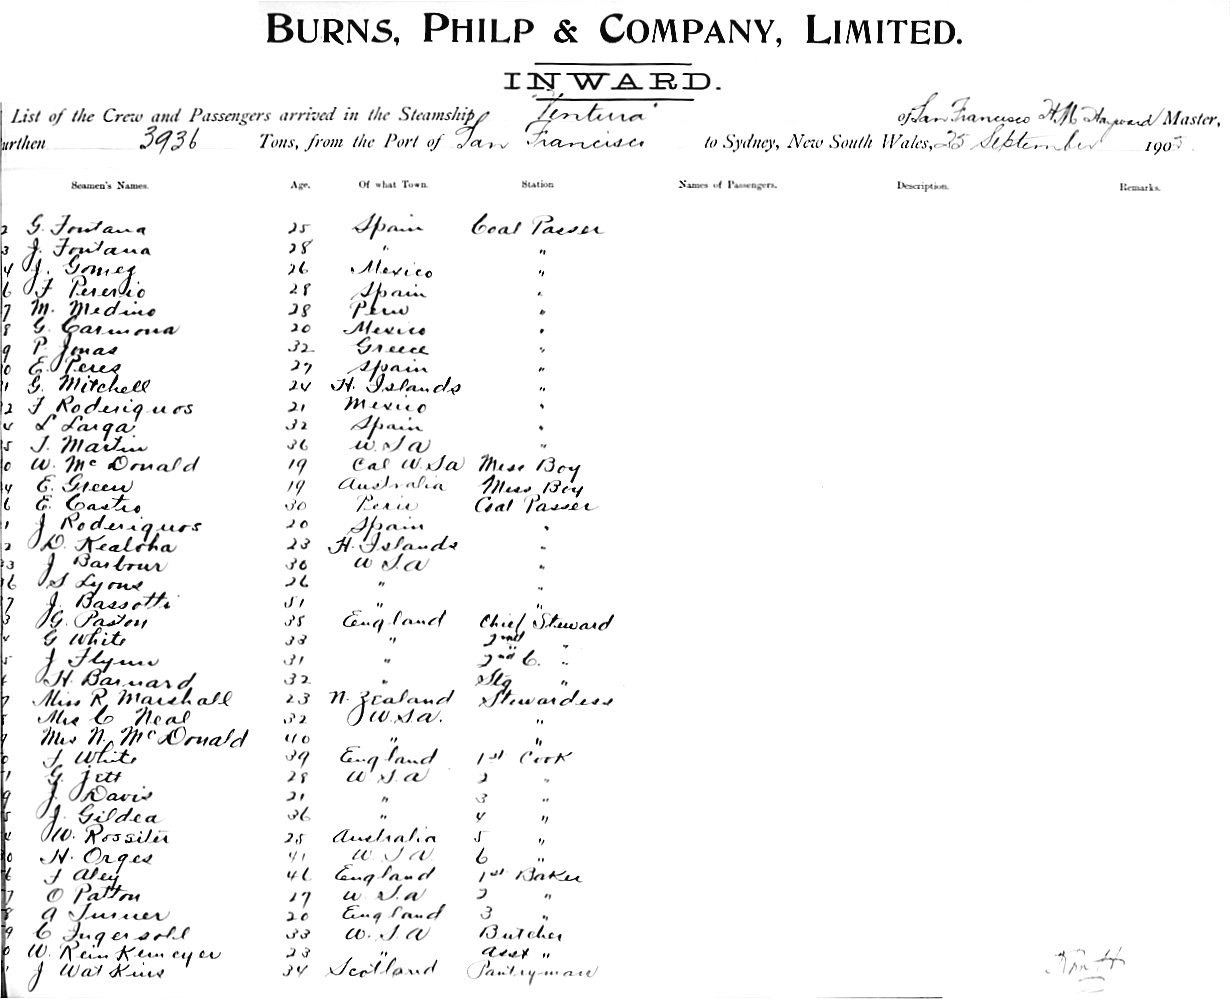 BURNS, PHILP & COMPANY, LIMITED.
INWARD.
List of the Crew and Passengers arrived in the Steamship Ventura of San Francisco H.M Hayward Master,
urthen 3936 Tons, from the Port of San Francisco to Sydney, New South Wales, 25 September 190
Seamen's Names. Age. Of what Town. Station Names of Passengers. Description. Remarks.
2 G. Fontana 25 Spain Coal Passer
3 J. Fontana 28 " "
4 J. Gomez 26 Mexico "
6 F Pererio 28 Spain "
7 M. Medino 28 Peru "
8 G. Carmona 20 Mexico "
9 P. Jonas 32 Greece "
0 E. Peres 27 Spain "
1 G. Mitchell 24 H. Islands "
2 F Roderiquos 21 Mexico "
4 L Larga 32 Spain "
5 J. Martin 36 U.S.A "
0 W. McDonald 19 Cal U.S.A Mess Boy
4 E. Green 19 Australia Mess Boy
6 E. Castro 30 Peru Coal Passer
1 J Roderiquos 20 Spain "
2 D. Kealoha 23 H. Islands "
33 J Barbour 30 U S.A "
36 S Lyons 26 " "
7 J. Bassotti 51 " "
3 G. Paston 35 England Chief Steward
4 G White 33 " 2nd "
5 J Flynn 31 " 2nd C. "
H. Barnard 32 " Stg "
7 Miss R Marshall 23 N. Zealand Stewardess
8 Mrs C Neal 32 U.S.A. "
9 Mrs N. McDonald 40 " "
0 F White 39 England 1st Cook
1 G. Jett 28 U S.A 2 "
9 J. Davis 21 " 3 "
5 J. Gildea 36 " 4 "
4 W. Rossiter 25 Australia 5 "
30 H. Orges 41 U.S.A. 6 "
6 F Aley 46 England 1st Baker
7 O Patton 27 U.S.A 2 "
8 A Turner 20 England 3 "
9 C Ingersohl 33 U.S.A Butcher
0 W. Reinkemeyer 23 " Asst "
1 J Watkins 34 Scotland Pantryman